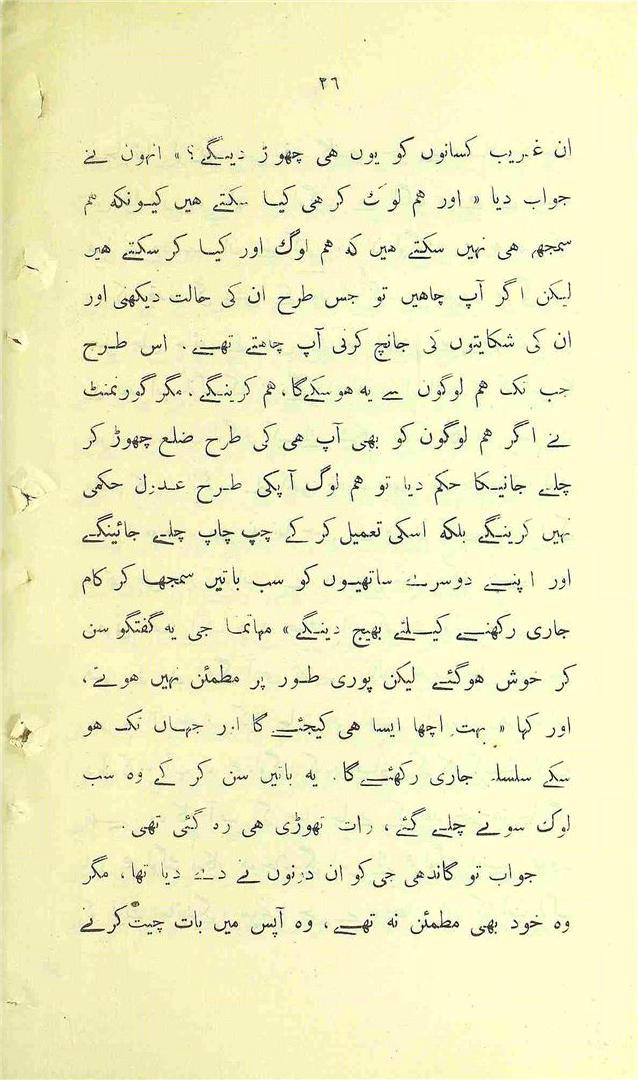 ۳۶
ان غریب کسانوں کو یوں ھی چھوڑ دینگے؟» انہوں نے
جواب دیا « اور ھم لوگ کر ھی کیا سکتے ھیں کیونکہ ھم
سمجھ ھی نہیں سکتے ھیں کہ ھم لوگ اور کیا کر سکتے ھیں
لیکن اگر آپ چاھیں تو جس طرح ان کی حالت دیکھنی اور
ان کی شکایتوں کی جانچ کرنی آپ چاھتے تھے. اس طرح
جب تک ھم لوگوں سے یہ ھوسکےگا، ھم کرینگے. مگر گورنمنٹ
نے اگر ھم لوگوں کو بھی آپ ھی کی طرح ضلع چھوڑ کر
چلے جانیکا حکم دیا تو ھم لوگ آپکی طرح عدول حکمی
نہیں کرینگے بلکہ اسکی تعمیل کر کے چپ چاپ چلے جائینگے
اور اپنے دوسرے ساتھیوں کو سب باتیں سمجھا کر کام
جاری رکھنے کیلئے بھیج دینگے» مہاتما جی یہ گفتگو سن
کر خوش ھوگئے لیکن پوری طور پر مطمئن نہیں ھوئے،
اور کہا « بہت اچھا ایسا ھی کیجئے گا اور جہاں تک ھو
سکے سلسلہ جاری رکھئےگا. یہ باتیں سن کر کے وہ سب
لوگ سونے چلے گئے، رات تھوڑی ھی رہ گئی تھی.
جواب تو گاندھی جی کو ان دونوں نے دے دیا تھا، مگر
وہ خود بھی مطمئن نہ تھے، وہ آپس میں بات چیت کرنے